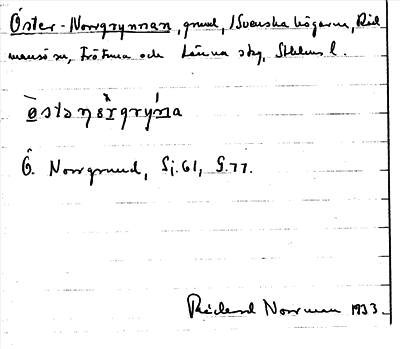 Öster-Norrgrynnan, grund, i Svenska högarne, Räd
mansö sn, Frötuna och Länna skg, Sthlms l.
östəŋɵrgrýna
Ö. Norrgrund, Sj. 61, S. 77.
Rickard Norrman 1933.